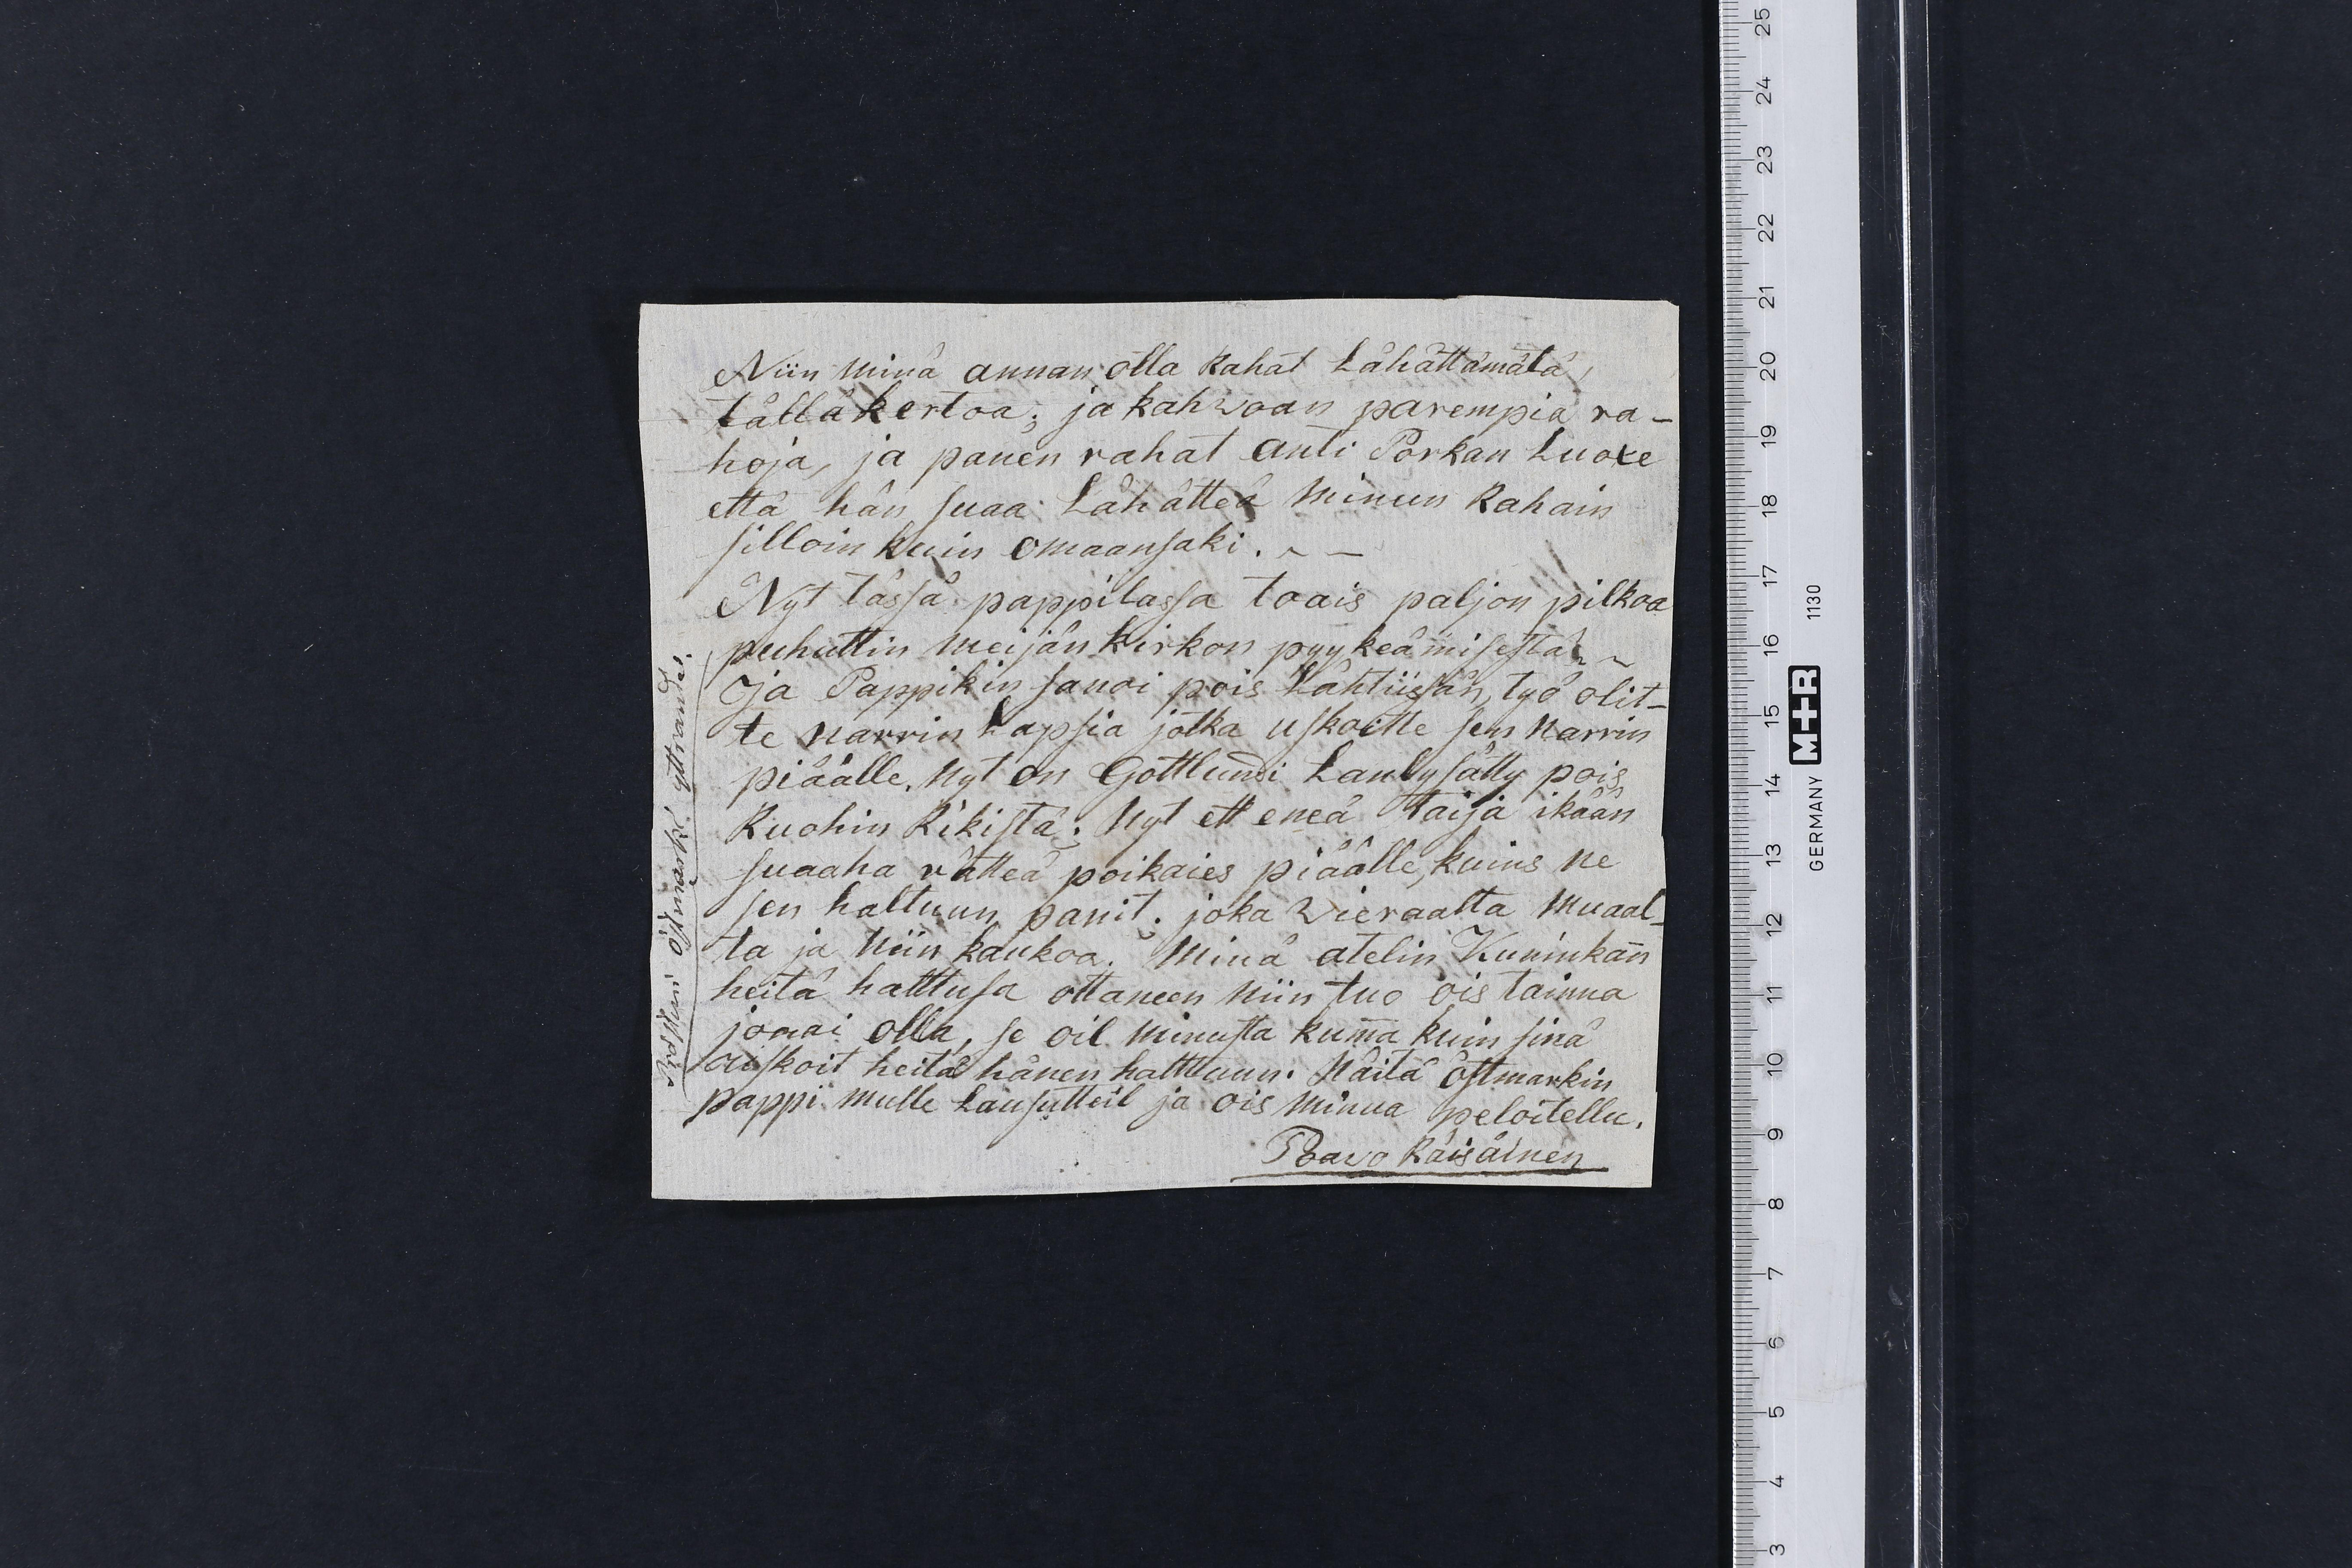 Niin minä annan olla Rahat Lähättämätä,
tällä kertoa; ja kahwoan parempia ra-
hoja, ja panen rahat anti Porkan Luoxe
että hän suaa Lähätteä minun Rahain
silloin kuin omaansaki. ~ —
Nyt tässä pappilassa toais paljon pilkoa
puhuttin meijän kirkon pyykeämisestä ~ ~
Oja Pappikin sanoi pois Lähtiissän, työ olit-
te narrin Lapsia jotka uskoitte sen narrin
piäälle. nyt on Gottlundi Laulysätty pois
Ruohin Rikistä; nyt ett eneä taija ikään
suaaha rätteä poikaies piäälle, kuins ne
sen haltuun panit; joka wieraalta muaal-
ta ja niin kaukoa. minä atelin Kuninkan̄
heitä halttusa ottaneen niin tuo ois tainna
jonai olla, se oil minusta kum̄a kuin sinä
aiskoit heitä hänen halttuun. Näitä östmarkin
pappi mulle Lausutteil ja ois minua peloitellu.
Poavo Räisäinen
Prosteni östmarki yttrandes.
25
24
23
22
21
20
19
18
17
16
15
14
13
12
11
10
9
8
7
6
5
4
3
GERMANY M+R 1130